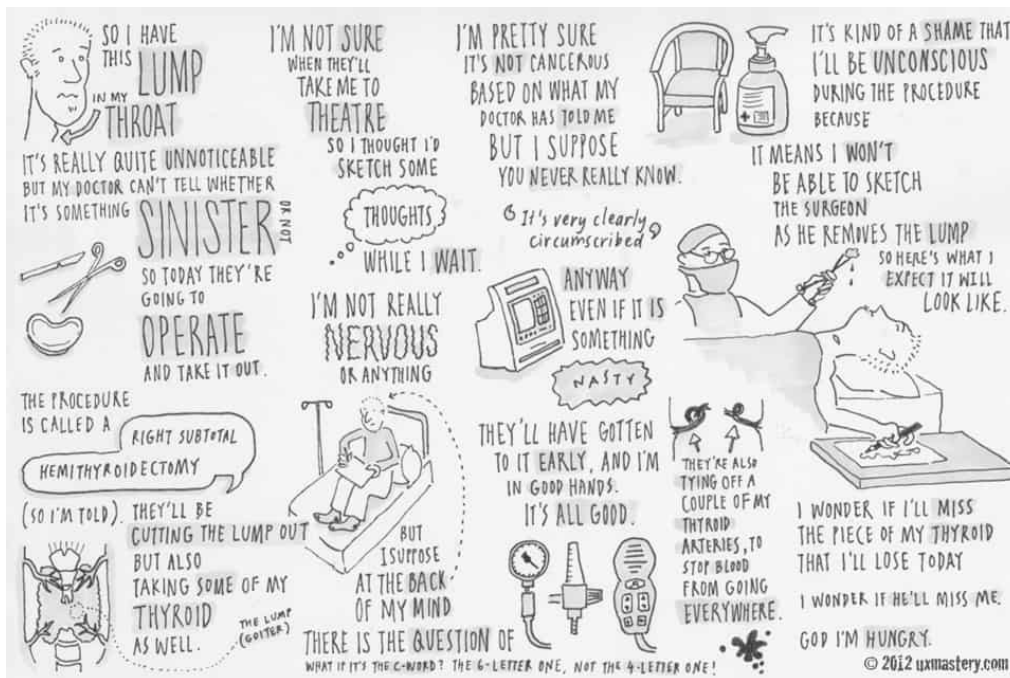 SO I HAVE
THIS LUMP
IN MY
THROAT
IT'S REALLY QUITE UNNOTICEABLE
BUT MY DOCTOR CAN'T TELL WHETHER
IT'S SOMETHING SINISTER OR NOT
SO TODAY THEY'RE
GOING TO
OPERATE
AND TAKE IT OUT.
THE PROCEDURE
IS CALLED A
RIGHT SUBTOTAL
HEMITHYROIDECTOMY
(SO I'M TOLD). THEY'LL BE
CUTTING THE LUMP OUT
BUT ALSO
TAKING SOME OF MY
THYROID
AS WELL.
THE LUMP
(GOITER)
I'M NOT SURE
WHEN THEY'LL
TAKE ME TO
THEATRE
SO I THOUGHT I'D
SKETCH SOME
THOUGHTS
WHILE I WAIT.
I'M NOT REALLY
NERVOUS
OR ANYTHING
BUT
I SUPPOSE
AT THE BACK
OF MY MIND
THERE IS THE QUESTION OF
WHAT IF IT'S THE C-WORD? THE 6-LETTER ONE, NOT THE 4-LETTER ONE!
I'M PRETTY SURE
IT'S NOT CANCEROUS
BASED ON WHAT MY
DOCTOR HAS TOLD ME
BUT I SUPPOSE
YOU NEVER REALLY KNOW.
"It's very clearly
circumscribed"
ANYWAY
EVEN IF IT IS
SOMETHING
NASTY
THEY'LL HAVE GOTTEN
TO IT EARLY, AND I'M
IN GOOD HANDS.
IT'S ALL GOOD.
THEY'RE ALSO
TYING OFF A
COUPLE OF MY
THYROID
ARTERIES, TO
STOP BLOOD
FROM GOING
EVERYWHERE.
IT'S KIND OF A SHAME THAT
I'LL BE UNCONSCIOUS
DURING THE PROCEDURE
BECAUSE
IT MEANS I WON'T
BE ABLE TO SKETCH
THE SURGEON
AS HE REMOVES THE LUMP
SO HERE'S WHAT I
EXPECT IT WILL
LOOK LIKE.
I WONDER IF I'LL MISS
THE PIECE OF MY THYROID
THAT I'LL LOSE TODAY
I WONDER IF HE'LL MISS ME.
GOD I'M HUNGRY.
© 2012 uxmastery.com